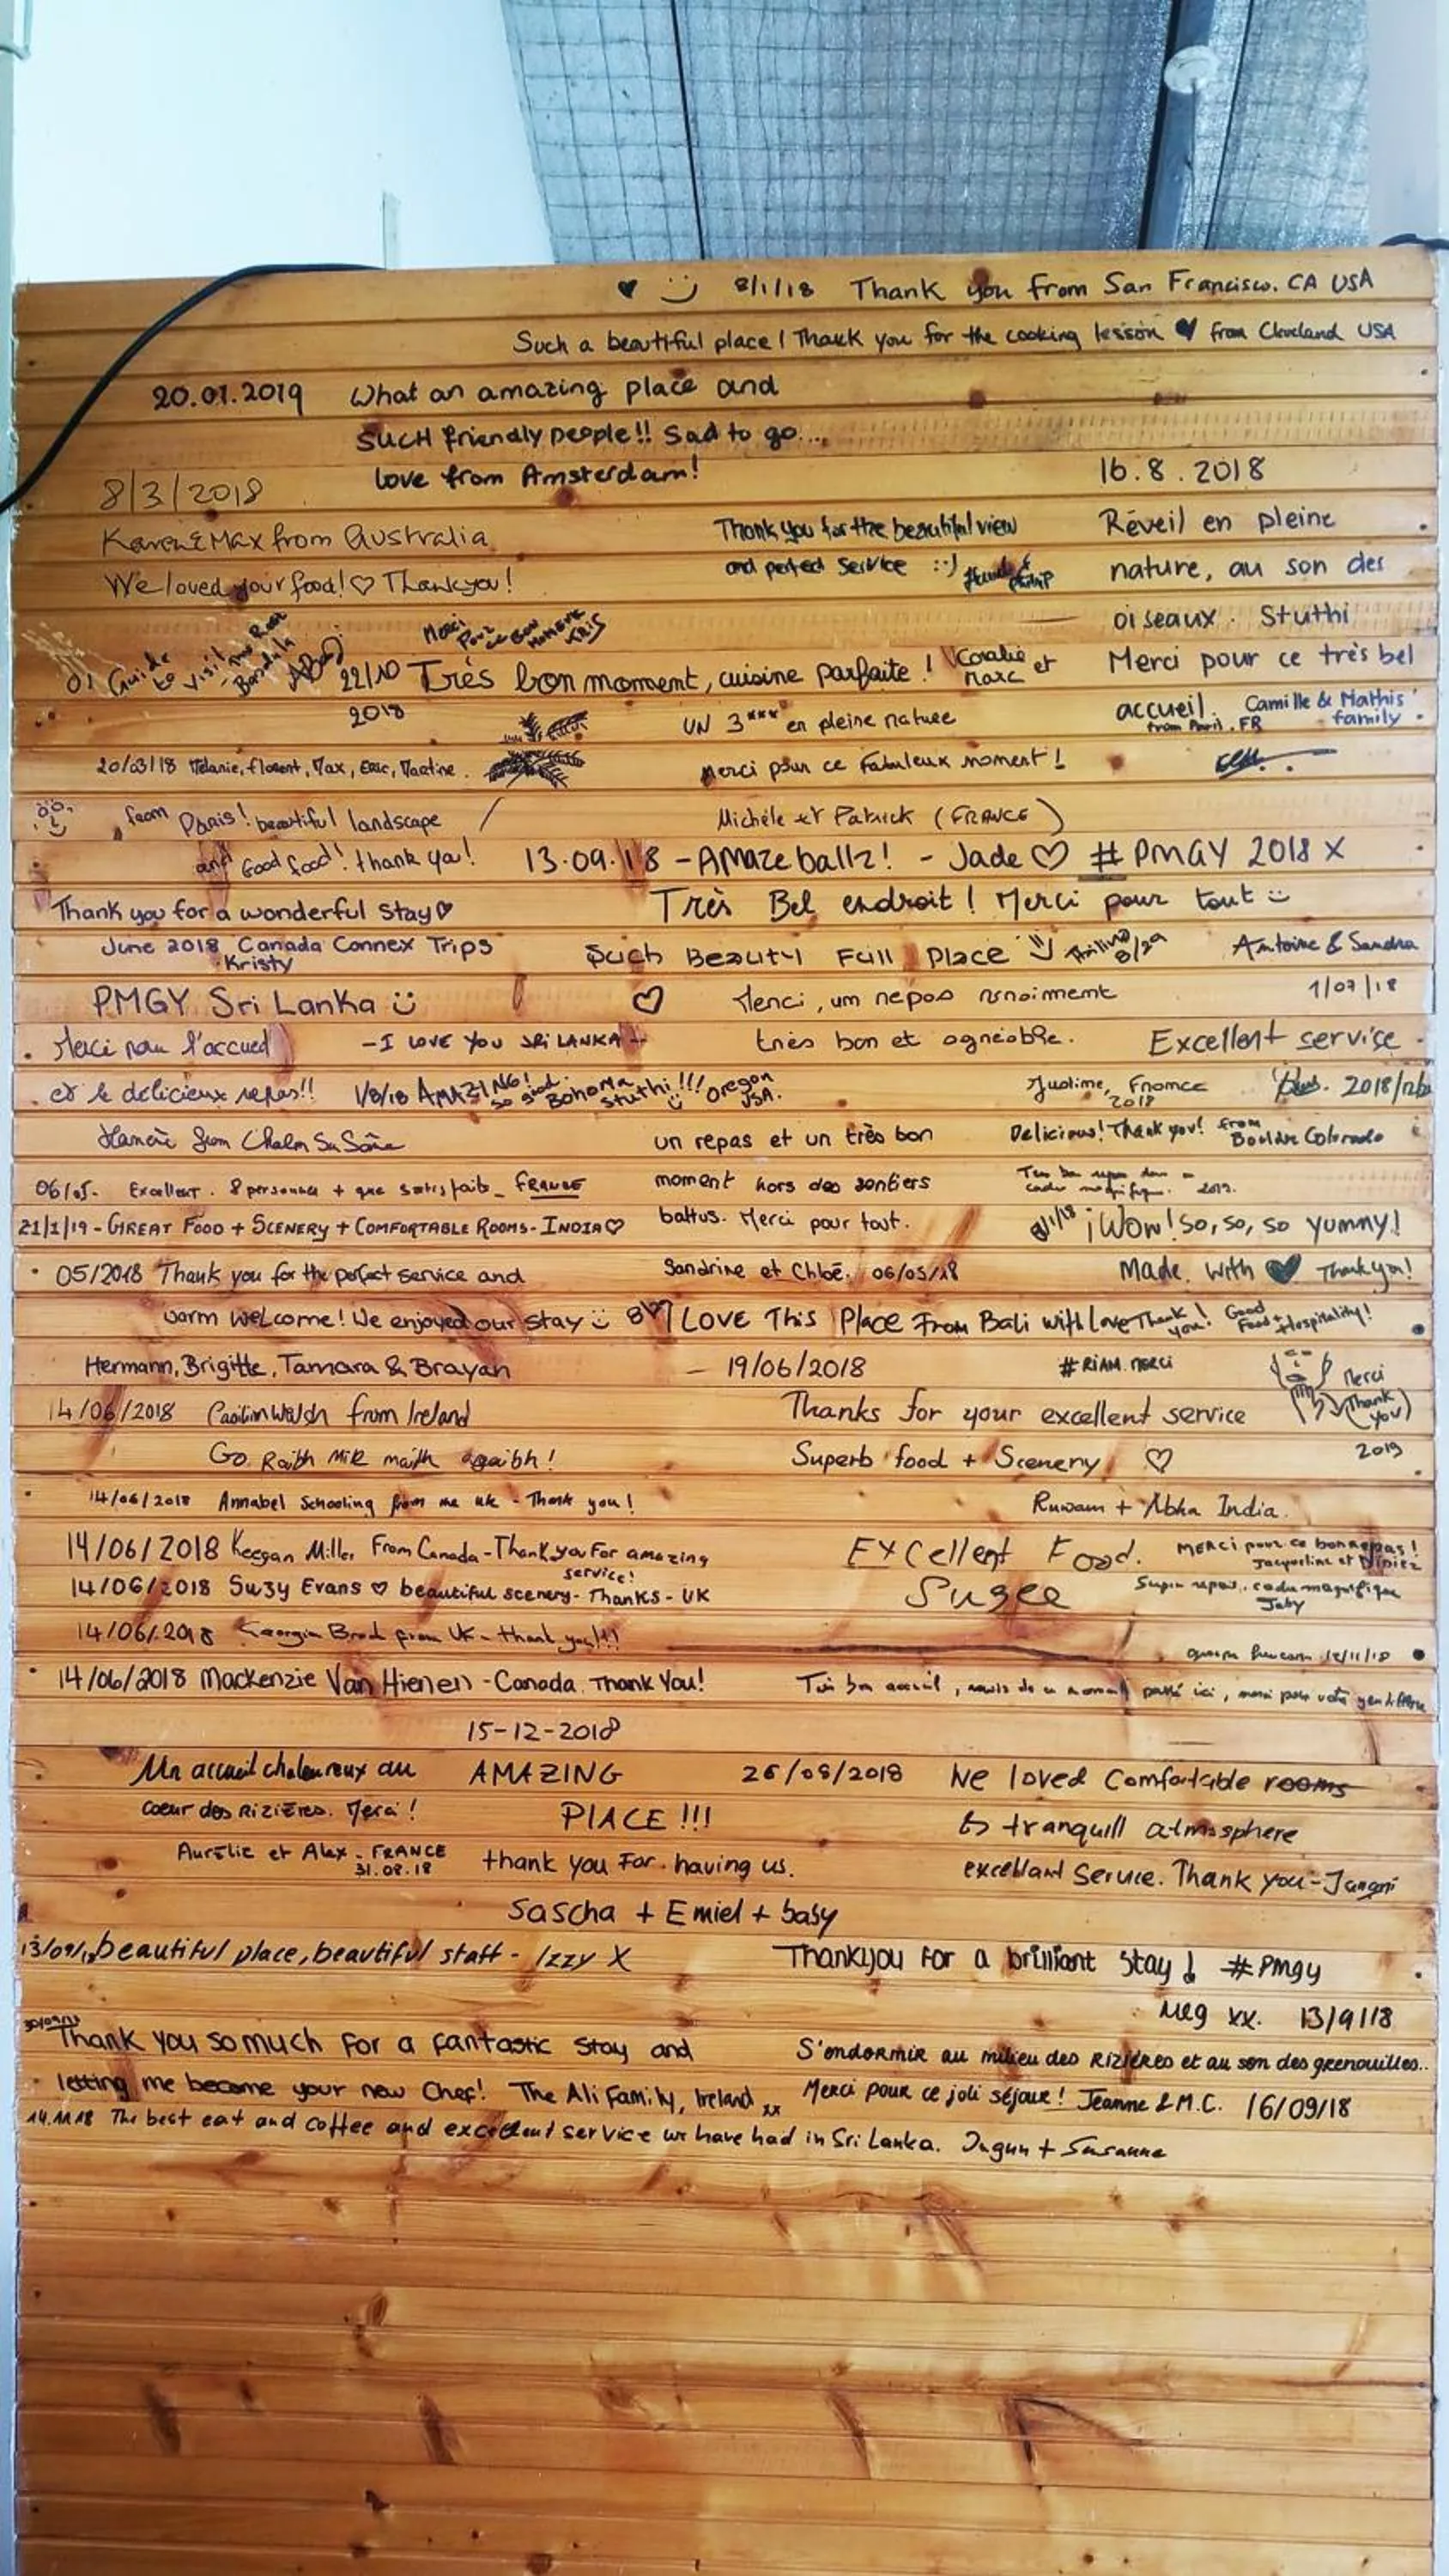 8/1/18 Thank you from San Francisco. CA USA
Such a beautiful place! Thank you for the cooking lesson ♥ from Cleveland USA
20.01.2019 What an amazing place and
SUCH friendly people!! Sad to go...
love from Amsterdam!
8/3/2018
Karen & Max from Australia
We loved your food! ♡ Thankyou!
Thank you for the beautiful view
and perfect Service :-)
16.8.2018
Réveil en pleine
nature, au son des
oiseaux. Stuthi
Merci pour ce très bel
accueil. Camille & Mathis
from Paris. FR family
Merci
Pour
ce Bon
MOMENT
KRIS
22/10 Très bon moment, cuisine parfaite! Coralie et
2018 Marc
UN 3*** en pleine nature
Merci pour ce Fabuleux moment!
Michèle et Patrick (FRANCE)
20/03/18 Mélanie, Florent, Max, Eric, Martine.
from Paris! beautiful landscape
and Good food! thank you!
13.09.18 - AMazeballz! - Jade ♡ #PMGY 2018 X
Thank you for a wonderful stay ♡
June 2018 Canada Connex Trips
Kristy
Très Bel endroit! Merci pour tout
Antoine & Sandra
1/07/18
Such Beauty Full Place
PMGY Sri Lanka
Merci, um repos vraiment
très bon et agréable.
Justine, France
2018
- I LOVE YOU SRI LANKA -
Excellent service
Merci pour l'accueil
et le délicieux repas!!
1/8/18 AMAZING! so good. Bohoma stuthi!!! Oregon
USA.
Delicious! Thank you! from
Boulder Colorado
un repas et un très bon
moment hors des sentiers
battus. Merci pour tout.
Sandrine et Chloé. 06/05/18
06/05. Excellent. 8 personnes + que satisfaits_ FRANCE
21/1/19 - GREAT FOOD + SCENERY + COMFORTABLE ROOMS - INDIA ♡
¡Wow! So, so, so yummy!
Made with ♥ Thank you!
05/2018 Thank you for the perfect service and
warm welcome! We enjoyed our stay
Hermann, Brigitte, Tamara & Brayan
I LOVE This Place From Bali with Love Thank you! Good Food + Hospitality!
#RIAM.MERCI
Merci
(Thank
you)
2019
19/06/2018
Thanks for your excellent service
Superb food + Scenery ♡
14/06/2018 Caoilinn Walsh from Ireland
Go Raibh Míle maith agaibh!
14/06/2018 Annabel Schooling from the UK - Thank you!
14/06/2018 Keegan Miller From Canada - Thank you For amazing
service!
14/06/2018 Suzy Evans ♡ beautiful scenery - Thanks - UK
14/06/2018 from UK - thank you!!!
14/06/2018 Mackenzie Van Hienen - Canada Thank You!
India.
Excellent Food.
Sugee
MERCI pour ce bon repas!
Jacqueline et Didier
Super repas, cadre magnifique
12/11/18
Très bon accueil, ravis de ce moment passé ici, merci pour votre gentillesse
15-12-2018
AMAZING
PlACE!!!
thank you For having us.
Sascha + Emiel + baby
Un accueil chaleureux au
coeur des RiZiÈRES. Merci!
Aurélie et Alex - FRANCE
31.08.18
26/08/2018 We loved Comfortable rooms
tranquill atmosphere
excellant Service. Thank you -
13/09/18 beautiful place, beautiful staff - Izzy X
Thankyou For a brilliant stay! #Pmgy
Meg xx. 13/9/18
Thank you so much For a fantastic stay and
letting me become your new Chef! The Ali Family, Ireland xx
S'endormir au milieu des RiZiÈRES et au son des grenouilles..
Merci pour ce joli séjour! Jeanne & M.C. 16/09/18
14.11.18 The best eat and coffee and excellent service we have had in Sri Lanka. + Susanne